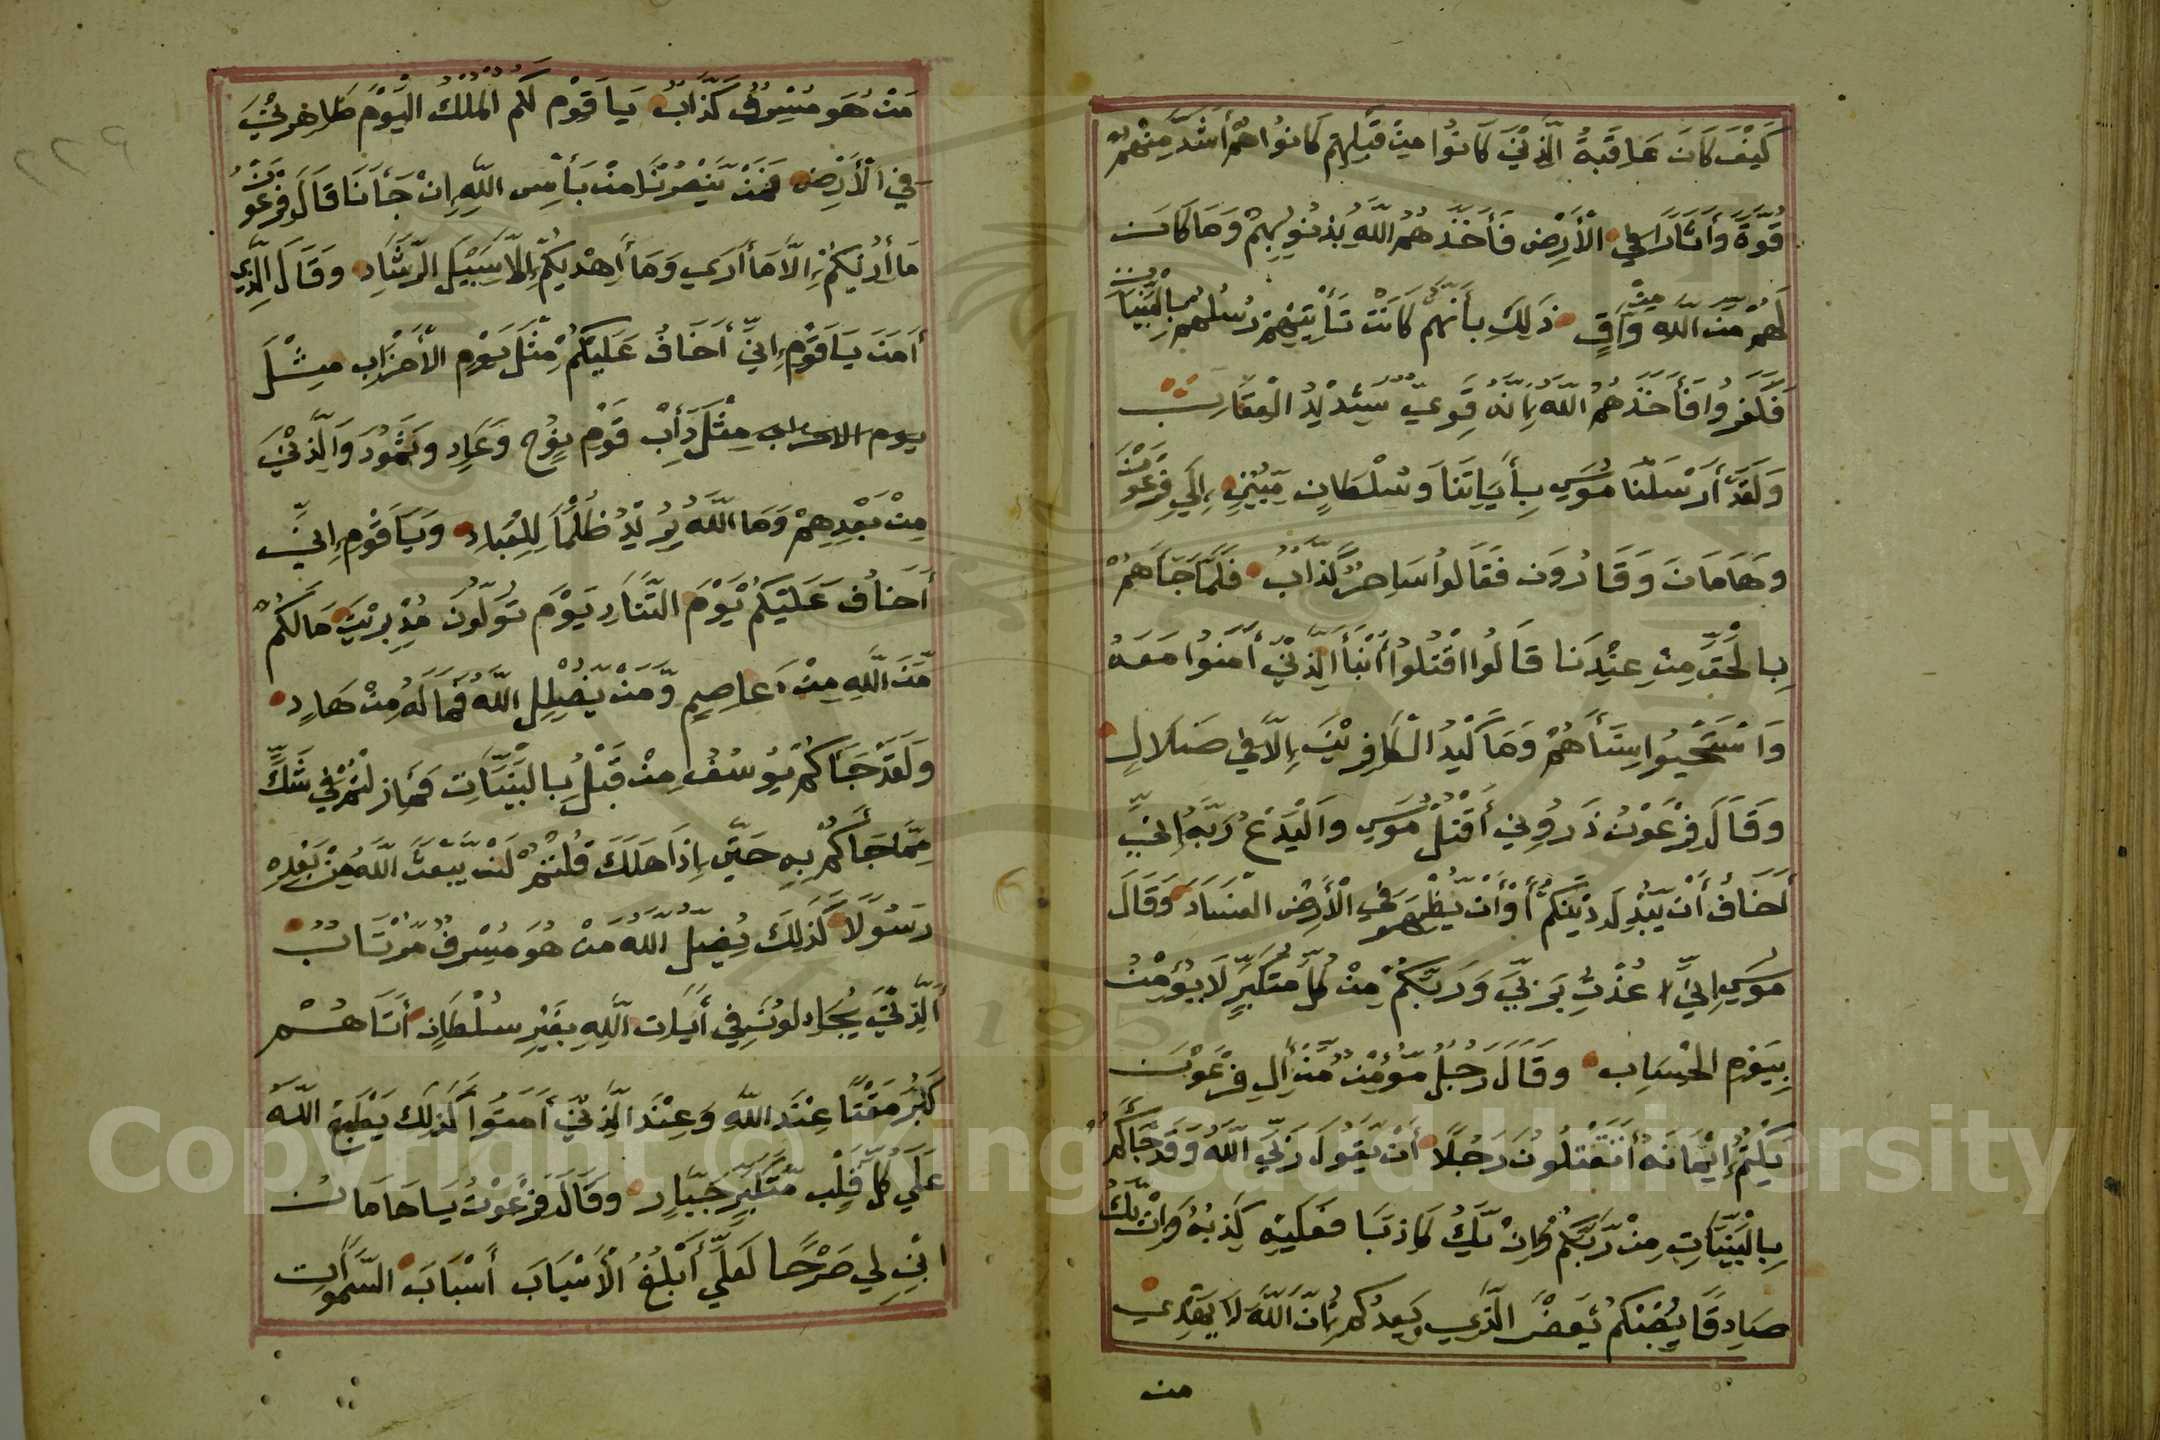 كَيْفَ كَانَ عَاقِبَةُ الَّذِيْنَ كَانُوا مِنْ قَبْلِهِمْ كَانُوا هُمْ أَشَدَّ مِنْهُمْ
قُوَّةً وَأَثَارًا فِي الْأَرْضِ فَأَخَذَهُمُ اللَّهُ بِذُنُوبِهِمْ وَمَا كَانَ
لَهُمْ مِنَ اللَّهِ مِنْ وَّاقٍ ذَلِكَ بِأَنَّهُمْ كَانَتْ تَأْتِيْهِمْ رُسُلُهُمْ بِالْبَيِّنَاتِ
فَكَفَرُوا فَأَخَذَهُمُ اللَّهُ إِنَّهُ قَوِيٌّ شَدِيْدُ الْعِقَابِ
وَلَقَدْ أَرْسَلْنَا مُوسَى بِأَيَاتِنَا وَسُلْطَانٍ مُّبِيْنٍ إِلَى فِرْعَوْنَ
وَهَامَانَ وَقَارُونَ فَقَالُوا سَاحِرٌ كَذَّابٌ فَلَمَّا جَأَهُمْ
بِالْحَقِّ مِنْ عِنْدِنَا قَالُوا اقْتُلُوا أَبْنَأَ الَّذِيْنَ أَمَنُوا مَعَهُ
وَاسْتَحْيُوا نِسَأَهُمْ وَمَا كَيْدُ الْكَافِرِيْنَ إِلَّا فِي ضَلَالٍ
وَقَالَ فِرْعَوْنُ ذَرُونِي أَقْتُلْ مُوسَى وَالْيَدْعُ رَبَّهُ إِنِّي
أَخَافُ أَنْ يُّبَدِّلَ دِيْنَكُمْ أَوْ أَنْ يُّظْهِرَ فِي الْأَرْضِ الْفَسَادَ وَقَالَ
مُوسَى إِنِّي عُذْتُ بِرَبِّي وَرَبِّكُمْ مِنْ كُلِّ مُتَكَبِّرٍ لَا يُؤْمِنُ
بِيَوْمِ الْحِسَابِ وَقَالَ رَجُلٌ مُّؤْمِنٌ مِّنْ أَلِ فِرْعَوْنَ
يَكْتُمُ إِيْمَانَهُ أَتَقْتُلُونَ رَجُلًا أَنْ يَّقُولَ رَبِّيَ اللَّهُ وَقَدْ جَأَكُمْ
بِالْبَيِّنَاتِ مِنْ رَّبِّكُمْ وَإِنْ يَّكُ كَاذِبًا فَعَلَيْهِ كَذِبُهُ وَإِنْ يَّكُ
صَادِقًا يُصِبْكُمْ بَعْضُ الَّذِي يَعِدُكُمْ إِنَّ اللَّهَ لَا يَهْدِي
من
مَنْ هُوَ مُسْرِفٌ كَذَّابٌ يَا قَوْمِ لَكُمُ الْمُلْكُ الْيَوْمَ ظَاهِرِيْنَ
فِي الْأَرْضِ فَمَنْ يَّنْصُرُنَا مِنْ بَأْسِ اللَّهِ إِنْ جَأَنَا قَالَ فِرْعَوْنُ
مَا أُرِيْكُمْ إِلَّا مَا أَرَى وَمَا أَهْدِيْكُمْ إِلَّا سَبِيْلَ الرَّشَادِ وَقَالَ الَّذِي
أَمَنَ يَا قَوْمِ إِنِّي أَخَافُ عَلَيْكُمْ مِّثْلَ يَوْمِ الْأَحْزَابِ مِثْلَ
يوم الاحزاب مِثْلَ دَأْبِ قَوْمِ نُوحٍ وَعَادٍ وَثَمُودَ وَالَّذِيْنَ
مِنْ بَعْدِهِمْ وَمَا اللَّهُ يُرِيْدُ ظُلْمًا لِلْعِبَادِ وَيَا قَوْمِ إِنِّي
أَخَافُ عَلَيْكُمْ يَوْمَ التَّنَادِ يَوْمَ تُوَلُّونَ مُدْبِرِيْنَ مَا لَكُمْ
مِّنَ اللَّهِ مِنْ عَاصِمٍ وَّمَنْ يُّضْلِلِ اللَّهُ فَمَا لَهُ مِنْ هَادٍ
وَلَقَدْ جَأَكُمْ يُوسُفُ مِنْ قَبْلُ بِالْبَيِّنَاتِ فَمَا زِلْتُمْ فِي شَكٍّ
مِّمَّا جَأَكُمْ بِهِ حَتَّى إِذَا هَلَكَ قُلْتُمْ لَنْ يَّبْعَثَ اللَّهُ مِنْ بَعْدِهِ
رَسُولًا كَذَلِكَ يُضِلُّ اللَّهُ مَنْ هُوَ مُسْرِفٌ مُّرْتَابٌ
الَّذِيْنَ يُجَادِلُونَ فِي أَيَاتِ اللَّهِ بِغَيْرِ سُلْطَانٍ أَتَاهُمْ
كَبُرَ مَقْتًا عِنْدَ اللَّهِ وَعِنْدَ الَّذِيْنَ أَمَنُوا كَذَلِكَ يَطْبَعُ اللَّهُ
عَلَى كُلِّ قَلْبِ مُتَكَبِّرٍ جَبَّارٍ وَقَالَ فِرْعَوْنُ يَا هَامَانُ
ابْنِ لِي صَرْحًا لَعَلِّي أَبْلُغُ الْأَسْبَابَ أَسْبَابَ السَّمَوَاتِ
Copyright © King Saud University
1957